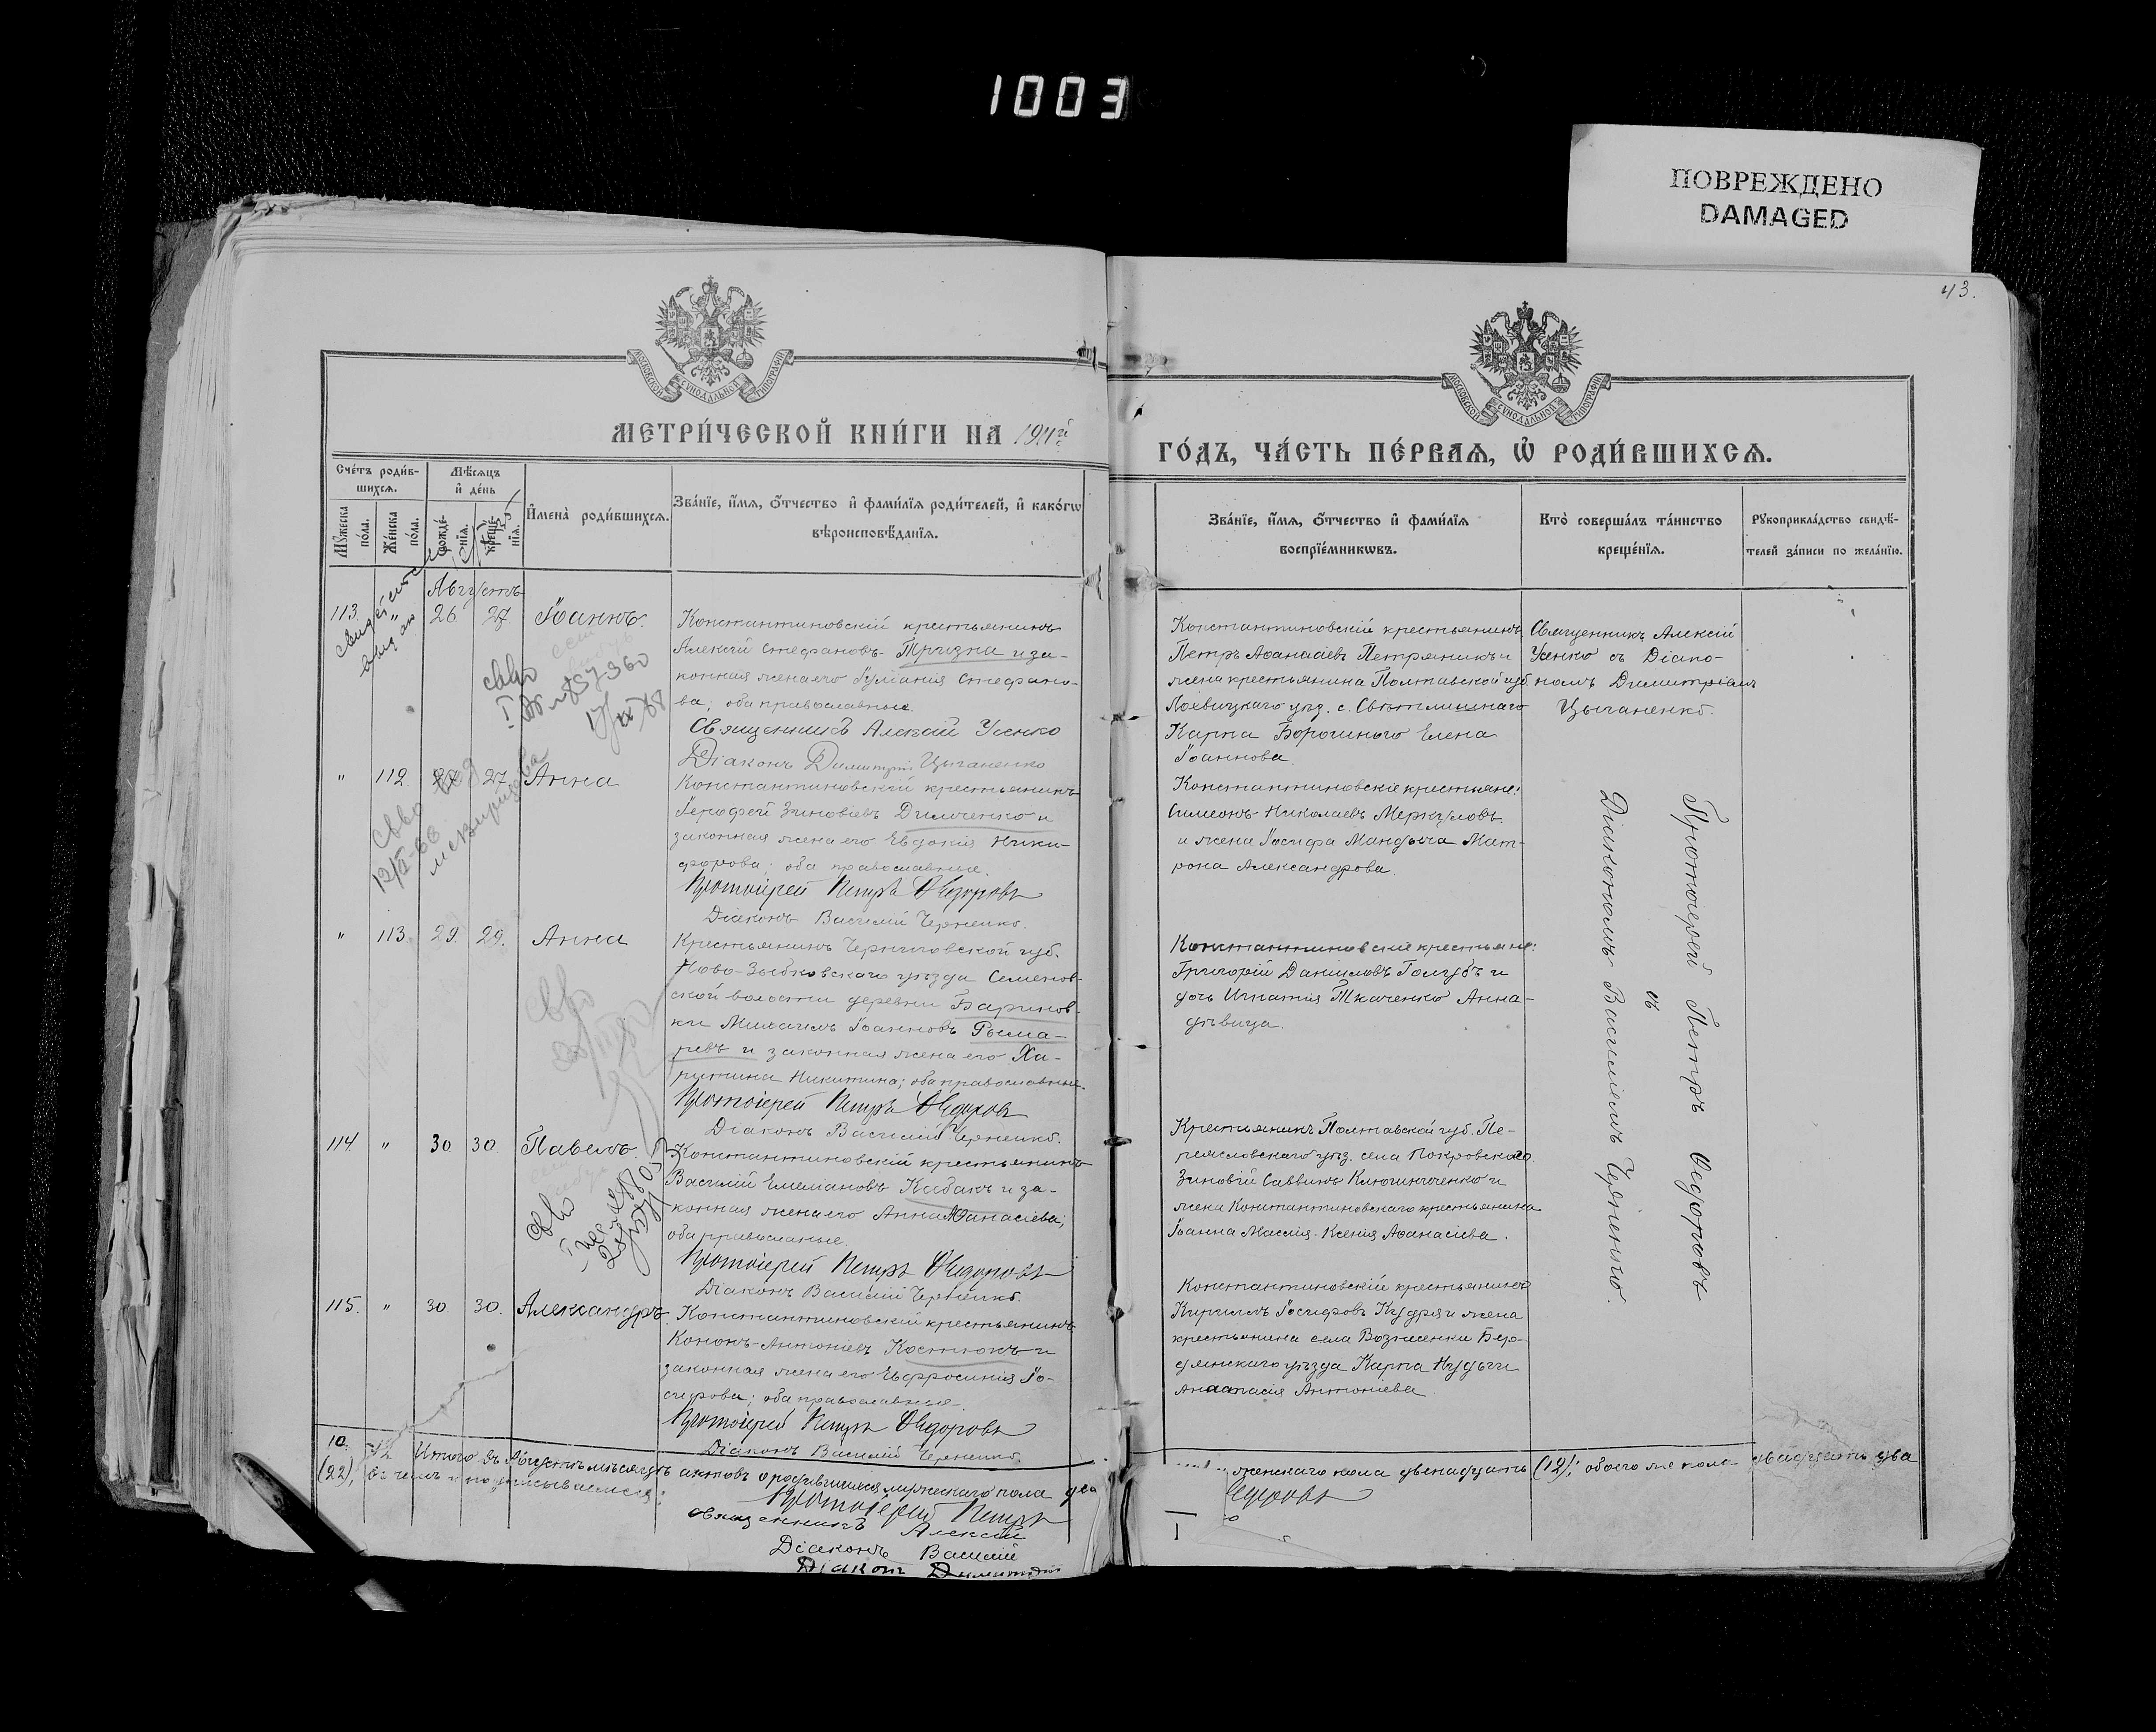 1003
ПОВРЕЖДЕНО
DAMAGED
43.
МОСКОВСКОЙ СѴНОДАЛЬНОЙ ТИПОГРАФІИ
МОСКОВСКОЙ СѴНОДАЛЬНОЙ ТИПОГРАФІИ
МЕТРИ́ЧЕСКОЙ КНИ́ГИ НА 1911й
ГО́ДЪ, ЧА́СТЬ ПЕ́РВАЯ, Ѡ҆ РОДИ́ВШИХСЯ.
Сче́тъ роди́в-
шихся.
Мѣ́сяцъ
и҆ де́нь
Мꙋ́жеска по́ла.
Же́нска по́ла.
рожде́-
нїя.
креще́-
нїя.
И҆мена̀ роди́вшихся.
Зва́нїе, и҆́мя, ѻ҆́тчество и҆ фами́лїя роди́телей, и҆ како́гѡ
вѣроисповѣ́данїя.
Зва́нїе, и҆́мя, ѻ҆́тчество и҆ фами́лїя
воспрїе́мникѡвъ.
Кто̀ соверша́лъ та́инство
креще́нїя.
Рꙋкоприкла́дство свидѣ́-
телей за́писи по жела́нїю.
Августъ
113. " 26. 27 Іоаннъ.
Константиновскій крестьянинъ
Алексій Стефановъ Тризна и за-
конная жена его Іуліанія Стефано-
ва; оба православные.
Священникъ Алексій Усенко
Діаконъ Димитрій Цыганенко
Константиновскій крестьянинъ
Петръ Аѳанасіевъ Петряникъ и
жена крестьянина Полтавской губ.
Лохвицкаго уѣз. с. Свѣтлишнаго
Карпа Борошнаго Елена
Іоаннова.
Священникъ Алексій
Усенко съ Діако-
номъ Димитріемъ
Цыганенко.
" 112. 27. 27. Анна
Константиновскій крестьянинъ
Іерофей Зиновіевъ Димченко и
законная жена его Евдокія Ники-
форова; оба православные.
Протоіерей Петръ Ѳедоровъ
Діаконъ Василій Черненко.
Константиновскіе крестьяне:
Симеонъ Николаевъ Меркуловъ
и жена Іосифа Мандыча Мат-
рона Александрова.
" 113. 29. 29. Анна
Крестьянинъ Черниговской губ.
Ново-Зыбковскаго уѣзда Семенов-
ской волости деревни Баринов-
ки Михаилъ Іоанновъ Рыма-
ревъ и законная жена его Ха-
ритина Никитина; оба православные.
Протоіерей Петръ Ѳедоровъ
Діаконъ Василій Черненко.
Константиновскіе крестьяне:
Григорій Даніиловъ Голубъ и
дочь Игнатія Ткаченко Анна-
дѣвица.
114. " 30 30 Павелъ.
Константиновскій крестьянинъ
Василій Емеліановъ Кабакъ и за-
конная жена его Анна Аѳанасіева;
оба православные.
Протоіерей Петръ Ѳедоровъ
Діаконъ Василій Черненко.
Крестьянинъ Полтавской губ. Пе-
реясловскаго уѣз. села Покровскаго
Зиновій Саввинъ и
жена Константиновскаго крестьянина
Іоанна Ксенія Аѳанасіева.
115. " 30. 30. Александръ.
Константиновскій крестьянинъ
Кононъ Антоніевъ Костюкъ и
законная жена его Евфросинія Іо-
сифова; оба православные.
Протоіерей Петръ Ѳедоровъ
Діаконъ Василій Черненко.
Константиновскій крестьянинъ
Кириллъ Іосифовъ Кудря и жена
крестьянина села Вознесенки Бер-
дянскаго уѣзда Карпа Нудьги
Анастасія Антоніева
Протоіерей Петръ Ѳедоровъ
съ
Діакономъ Василіемъ Черненко.
10. 12 Итого въ Августѣ мѣсяцѣ актовъ о родившихся мужескаго пола де
женскаго пола двенадцать (12); обоего же пола двадцать два
(22), въ чемъ и подписываемся:
Протоіерей Петръ
Ѳедоровъ
Священникъ Алексій
Діаконъ Василій
Діаконъ Димитрій